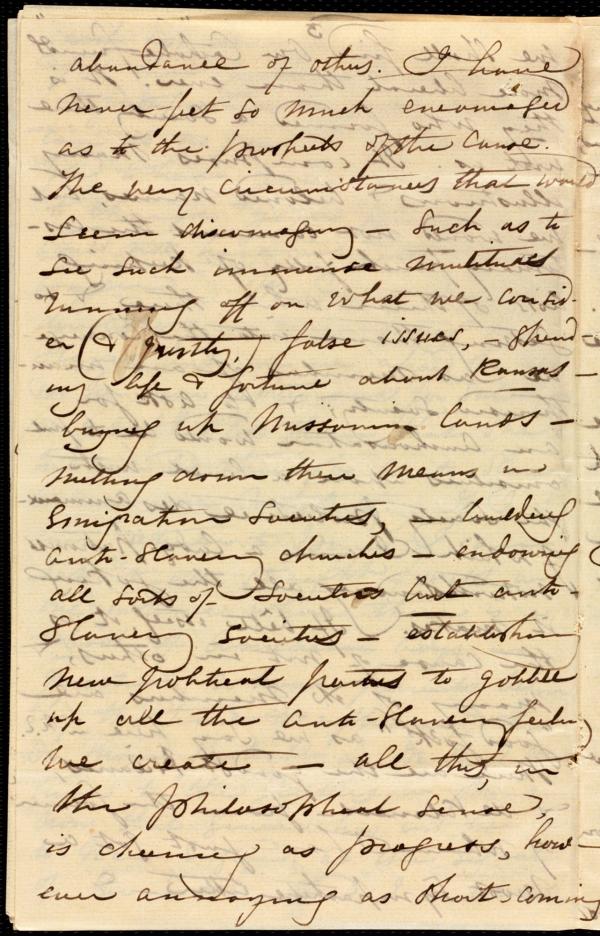 abundance of others. I have
never felt so much encouraged
as to the prospects of the Cause.
The very circumstances that would
seem discouraging — such as to
see such immense multitudes
running off on what we consid-
er (& justly,) false issues, — spend
ing life & fortune about Kansas —
buying up Missouri lands —
melting down their means in
Emigration Societies, — building
anti-Slavery churches — endowing
all sorts of Societies but anti-
Slavery Societies — establishing
new political parties to gobble
up all the anti-Slavery feeling
we create — all this, in
the philosophical sense,
is cheering as progress, how-
ever annoying as short-coming